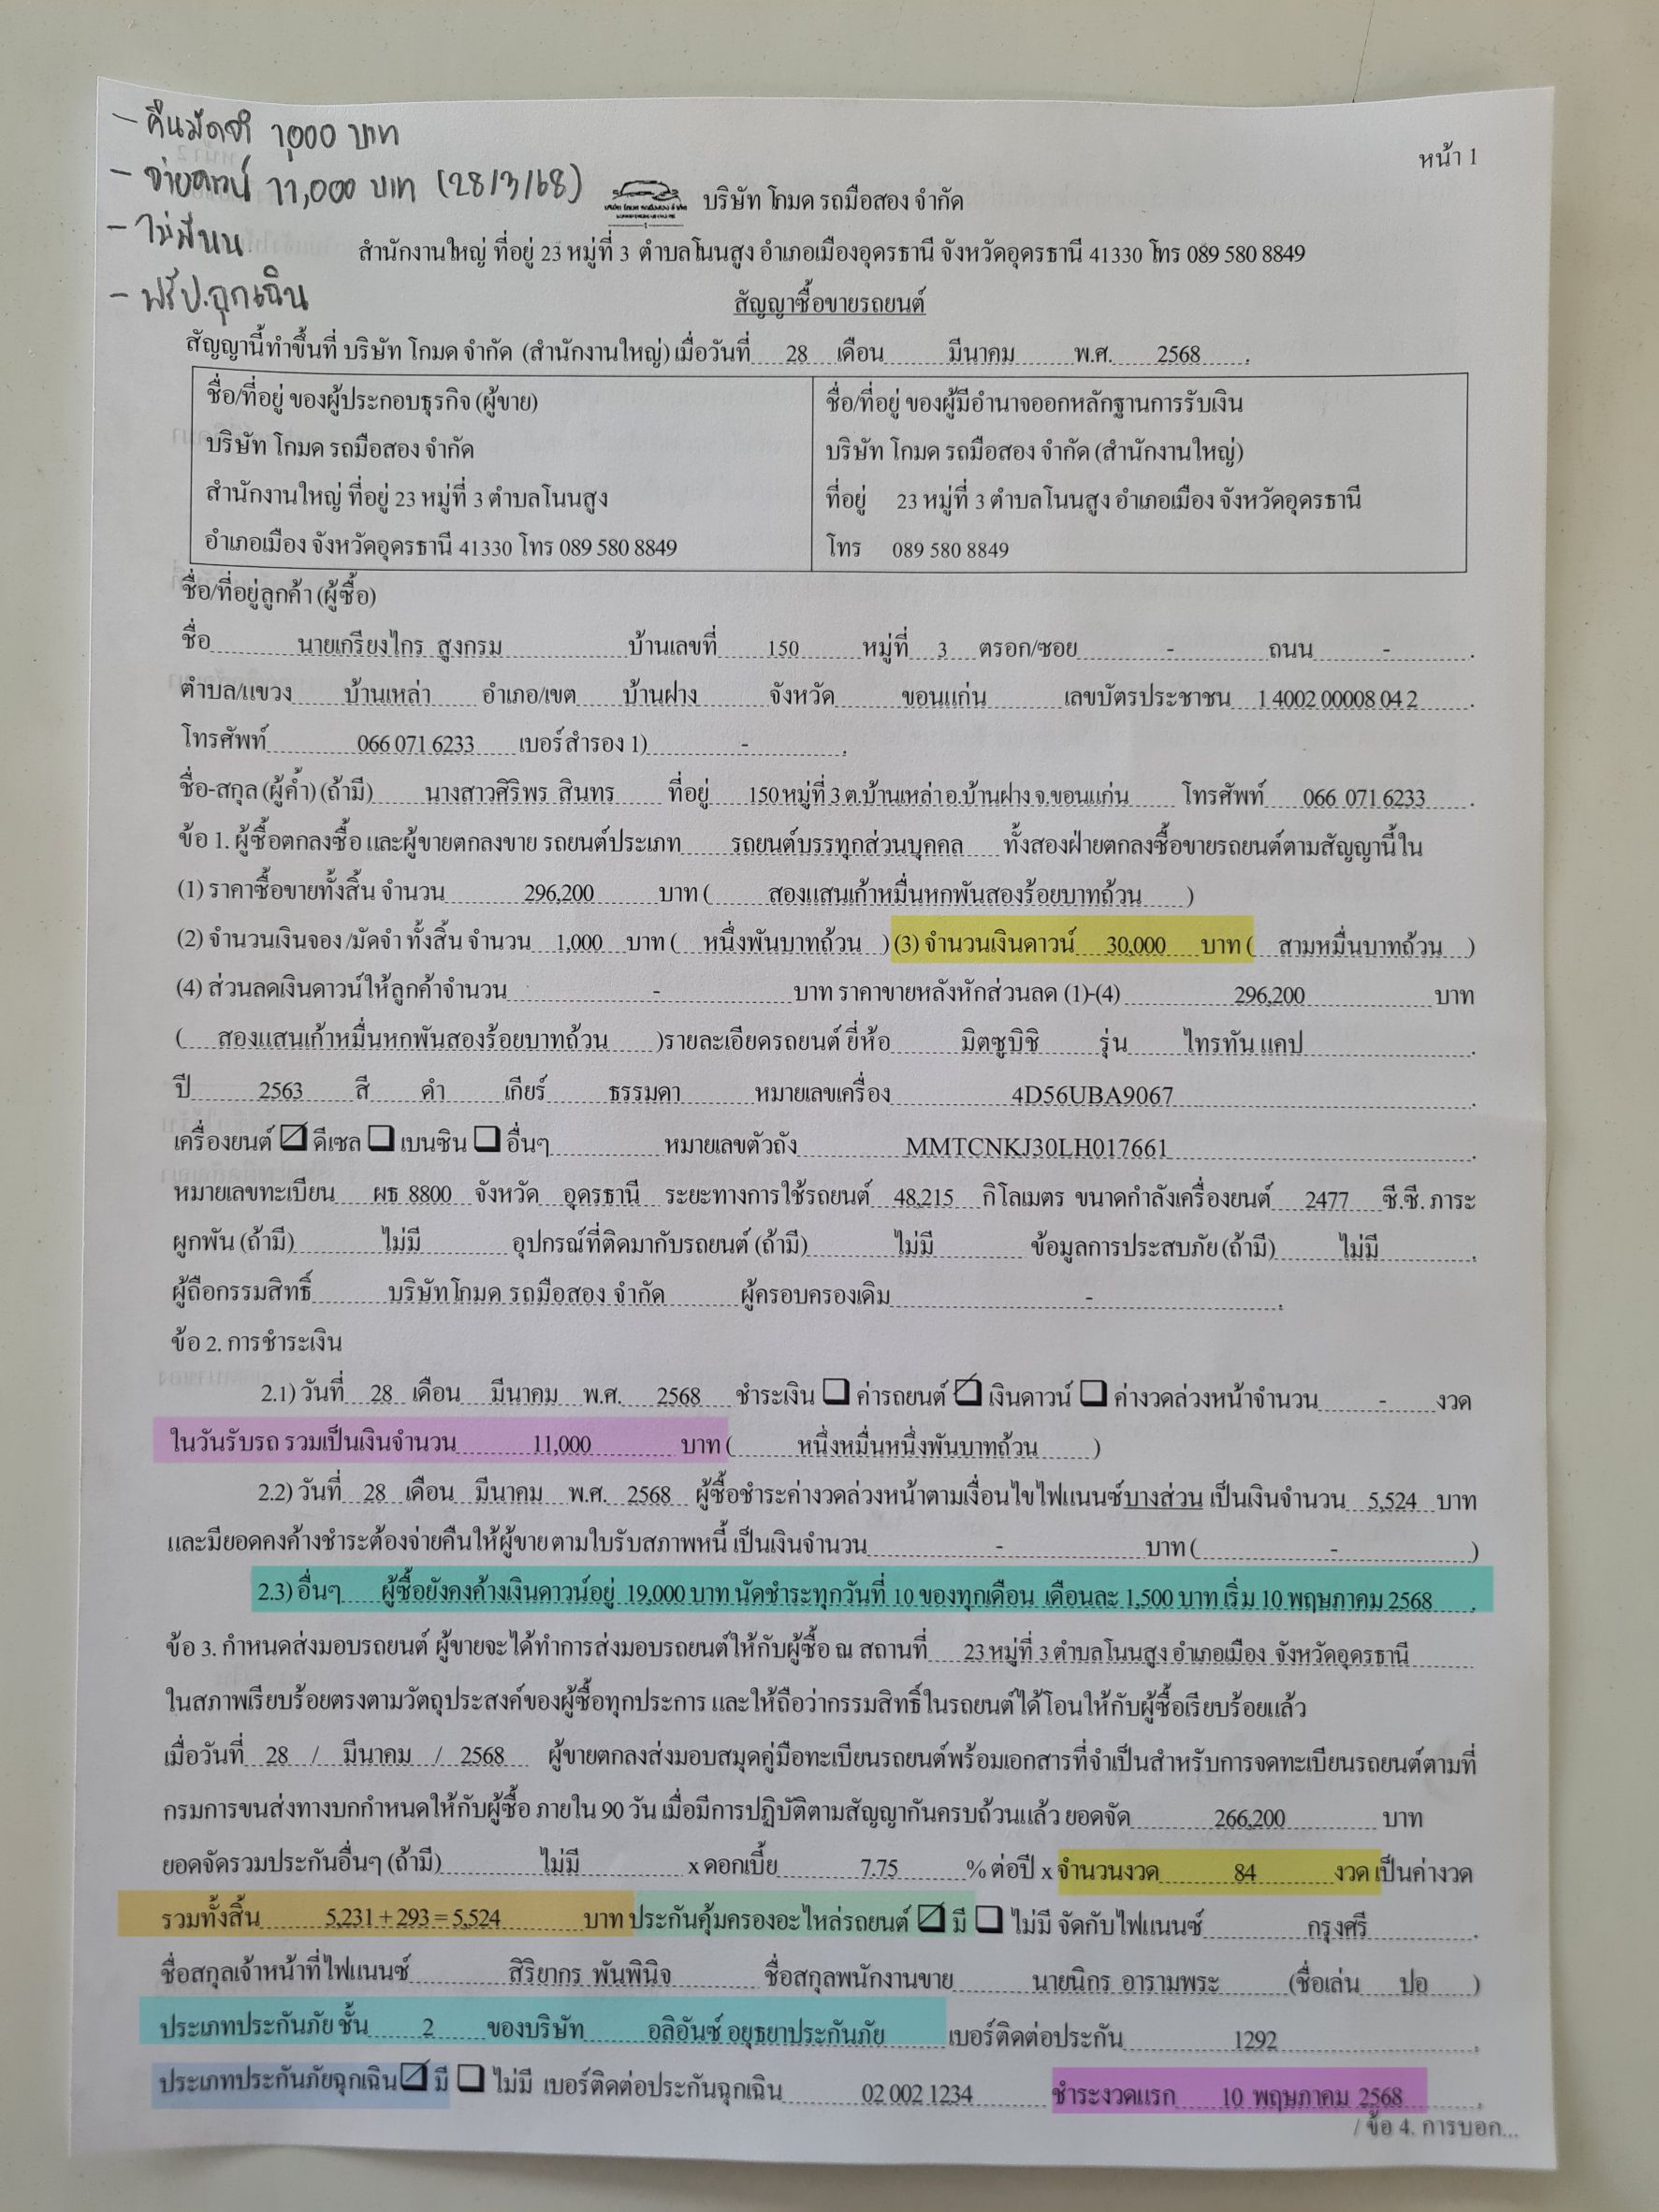 - คืนมัดจำ 1,000 บาท
- จ่ายดาวน์ 11,000 บาท (28/3/68)
- ไม่มีนน
- ฟรีป.ฉุกเฉิน
หน้า 1
บริษัท โกมด รถมือสอง จำกัด
สำนักงานใหญ่ ที่อยู่ 23 หมู่ที่ 3 ตำบลโนนสูง อำเภอเมืองอุดรธานี จังหวัดอุดรธานี 41330 โทร 089 580 8849
สัญญาซื้อขายรถยนต์
สัญญานี้ทำขึ้นที่ บริษัท โกมด จำกัด (สำนักงานใหญ่) เมื่อวันที่ 28 เดือน มีนาคม พ.ศ. 2568
ชื่อ/ที่อยู่ ของผู้ประกอบธุรกิจ (ผู้ขาย)
บริษัท โกมด รถมือสอง จำกัด
สำนักงานใหญ่ ที่อยู่ 23 หมู่ที่ 3 ตำบลโนนสูง
อำเภอเมือง จังหวัดอุดรธานี 41330 โทร 089 580 8849
ชื่อ/ที่อยู่ ของผู้มีอำนาจออกหลักฐานการรับเงิน
บริษัท โกมด รถมือสอง จำกัด (สำนักงานใหญ่)
ที่อยู่ 23 หมู่ที่ 3 ตำบลโนนสูง อำเภอเมือง จังหวัดอุดรธานี
โทร 089 580 8849
ชื่อ/ที่อยู่ลูกค้า (ผู้ซื้อ)
ชื่อ นายเกรียงไกร สูงกรม บ้านเลขที่ 150 หมู่ที่ 3 ตรอก/ซอย - ถนน -
ตำบล/แขวง บ้านเหล่า อำเภอ/เขต บ้านฝาง จังหวัด ขอนแก่น เลขบัตรประชาชน 1 4002 00008 04 2
โทรศัพท์ 066 071 6233 เบอร์สำรอง 1) -
ชื่อ-สกุล (ผู้ค้ำ) (ถ้ามี) นางสาวศิริพร สินทร ที่อยู่ 150 หมู่ที่ 3 ต.บ้านเหล่า อ.บ้านฝาง จ.ขอนแก่น โทรศัพท์ 066 071 6233
ข้อ 1. ผู้ซื้อตกลงซื้อ และผู้ขายตกลงขาย รถยนต์ประเภท รถยนต์บรรทุกส่วนบุคคล ทั้งสองฝ่ายตกลงซื้อขายรถยนต์ตามสัญญานี้ใน
(1) ราคาซื้อขายทั้งสิ้น จำนวน 296,200 บาท ( สองแสนเก้าหมื่นหกพันสองร้อยบาทถ้วน )
(2) จำนวนเงินจอง /มัดจำ ทั้งสิ้น จำนวน 1,000 บาท ( หนึ่งพันบาทถ้วน ) (3) จำนวนเงินดาวน์ 30,000 บาท ( สามหมื่นบาทถ้วน )
(4) ส่วนลดเงินดาวน์ให้ลูกค้าจำนวน - บาท ราคาขายหลังหักส่วนลด (1)-(4) 296,200 บาท
( สองแสนเก้าหมื่นหกพันสองร้อยบาทถ้วน )รายละเอียดรถยนต์ ยี่ห้อ มิตซูบิชิ รุ่น ไทรทัน แคป
ปี 2563 สี ดำ เกียร์ ธรรมดา หมายเลขเครื่อง 4D56UBA9067
เครื่องยนต์ ☑ ดีเซล ☐ เบนซิน ☐ อื่นๆ หมายเลขตัวถัง MMTCNKJ30LH017661
หมายเลขทะเบียน ผธ 8800 จังหวัด อุดรธานี ระยะทางการใช้รถยนต์ 48,215 กิโลเมตร ขนาดกำลังเครื่องยนต์ 2477 ซี.ซี. ภาระ
ผูกพัน (ถ้ามี) ไม่มี อุปกรณ์ที่ติดมากับรถยนต์ (ถ้ามี) ไม่มี ข้อมูลการประสบภัย (ถ้ามี) ไม่มี
ผู้ถือกรรมสิทธิ์ บริษัทโกมด รถมือสอง จำกัด ผู้ครอบครองเดิม -
ข้อ 2. การชำระเงิน
2.1) วันที่ 28 เดือน มีนาคม พ.ศ. 2568 ชำระเงิน ☐ ค่ารถยนต์ ☑ เงินดาวน์ ☐ ค่างวดล่วงหน้าจำนวน - งวด
ในวันรับรถ รวมเป็นเงินจำนวน 11,000 บาท ( หนึ่งหมื่นหนึ่งพันบาทถ้วน )
2.2) วันที่ 28 เดือน มีนาคม พ.ศ. 2568 ผู้ซื้อชำระค่างวดล่วงหน้าตามเงื่อนไขไฟแนนซ์บางส่วน เป็นเงินจำนวน 5,524 บาท
และมียอดคงค้างชำระต้องจ่ายคืนให้ผู้ขาย ตามใบรับสภาพหนี้ เป็นเงินจำนวน - บาท ( - )
2.3) อื่นๆ ผู้ซื้อยังคงค้างเงินดาวน์อยู่ 19,000 บาท นัดชำระทุกวันที่ 10 ของทุกเดือน เดือนละ 1,500 บาท เริ่ม 10 พฤษภาคม 2568
ข้อ 3. กำหนดส่งมอบรถยนต์ ผู้ขายจะได้ทำการส่งมอบรถยนต์ให้กับผู้ซื้อ ณ สถานที่ 23 หมู่ที่ 3 ตำบลโนนสูง อำเภอเมือง จังหวัดอุดรธานี
ในสภาพเรียบร้อยตรงตามวัตถุประสงค์ของผู้ซื้อทุกประการ และให้ถือว่ากรรมสิทธิ์ในรถยนต์ได้โอนให้กับผู้ซื้อเรียบร้อยแล้ว
เมื่อวันที่ 28 / มีนาคม / 2568 ผู้ขายตกลงส่งมอบสมุดคู่มือทะเบียนรถยนต์พร้อมเอกสารที่จำเป็นสำหรับการจดทะเบียนรถยนต์ตามที่
กรมการขนส่งทางบกกำหนดให้กับผู้ซื้อ ภายใน 90 วัน เมื่อมีการปฏิบัติตามสัญญากันครบถ้วนแล้ว ยอดจัด 266,200 บาท
ยอดจัดรวมประกันอื่นๆ (ถ้ามี) ไม่มี x ดอกเบี้ย 7.75 % ต่อปี x จำนวนงวด 84 งวด เป็นค่างวด
รวมทั้งสิ้น 5,231 + 293 = 5,524 บาท ประกันคุ้มครองอะไหล่รถยนต์ ☑ มี ☐ ไม่มี จัดกับไฟแนนซ์ กรุงศรี
ชื่อสกุลเจ้าหน้าที่ไฟแนนซ์ สิริยากร พันพินิจ ชื่อสกุลพนักงานขาย นายนิกร อารามพระ (ชื่อเล่น ปอ )
ประเภทประกันภัย ชั้น 2 ของบริษัท อลิอันซ์ อยุธยาประกันภัย เบอร์ติดต่อประกัน 1292
ประเภทประกันภัยฉุกเฉิน ☑ มี ☐ ไม่มี เบอร์ติดต่อประกันฉุกเฉิน 02 002 1234 ชำระงวดแรก 10 พฤษภาคม 2568
/ ข้อ 4. การบอก...